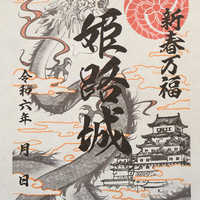 新春万福
姫路城
令和六年 月 日